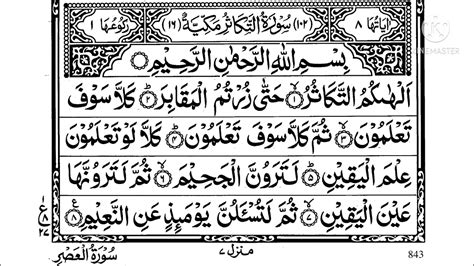 اٰیَاتُهَا ٨ (١٠٢) سُوْرَةُ التَّكَاثُرِ مَكِّیَّةٌ (١٦) رُكُوْعُهَا ١
KINEMASTER
بِسْمِ اللّٰهِ الرَّحْمٰنِ الرَّحِیْمِ
اَلْهٰىكُمُ التَّكَاثُرُ ۙ﴿١﴾ حَتّٰى زُرْتُمُ الْمَقَابِرَ ؕ﴿٢﴾ كَلَّا سَوْفَ
تَعْلَمُوْنَ ۙ﴿٣﴾ ثُمَّ كَلَّا سَوْفَ تَعْلَمُوْنَ ؕ﴿٤﴾ كَلَّا لَوْ تَعْلَمُوْنَ
عِلْمَ الْیَقِیْنِ ؕ﴿٥﴾ لَتَرَوُنَّ الْجَحِیْمَ ۙ﴿٦﴾ ثُمَّ لَتَرَوُنَّهَا
عَیْنَ الْیَقِیْنِ ۙ﴿٧﴾ ثُمَّ لَتُسْـَٔلُنَّ یَوْمَىِٕذٍ عَنِ النَّعِیْمِ ﴿٨﴾
١
ع
٨
٢٧
سُوْرَةُ الْعَصْرِ منزل ٧ 843